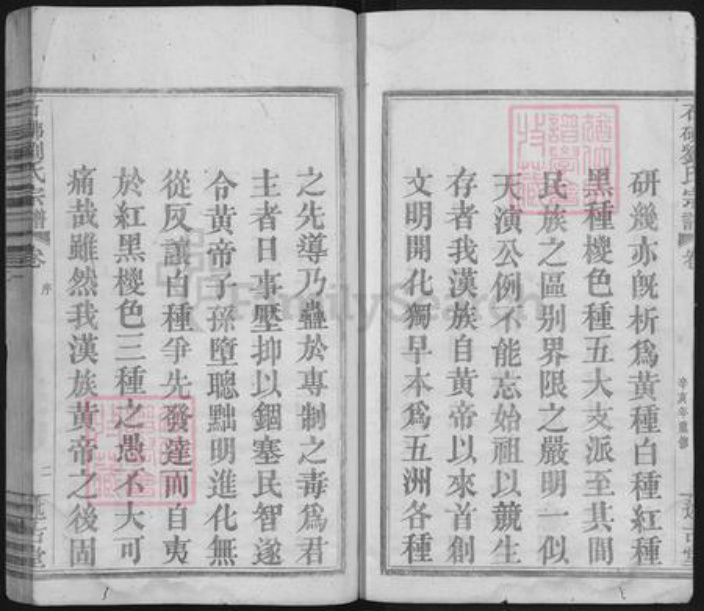 石硤劉氏宗譜
卷
辛亥年重修
研幾亦既析爲黃種白種紅種
黑種椶色種五大支派至其間
民族之區别界限之嚴明一似
天演公例不能忘始祖以競生
存者我漢族自黃帝以來首創
文明開化獨早本爲五洲各種
之先導乃蠱於專制之毒爲君
主者日事壓抑以錮塞民智遂
令黃帝子孫墮聰黜明進化無
從反讓白種爭先發達而自夷
於紅黑椶色三種之愚不大可
痛哉雖然我漢族黃帝之後固
劉氏宗譜
卷一
序
二
FamilySearch